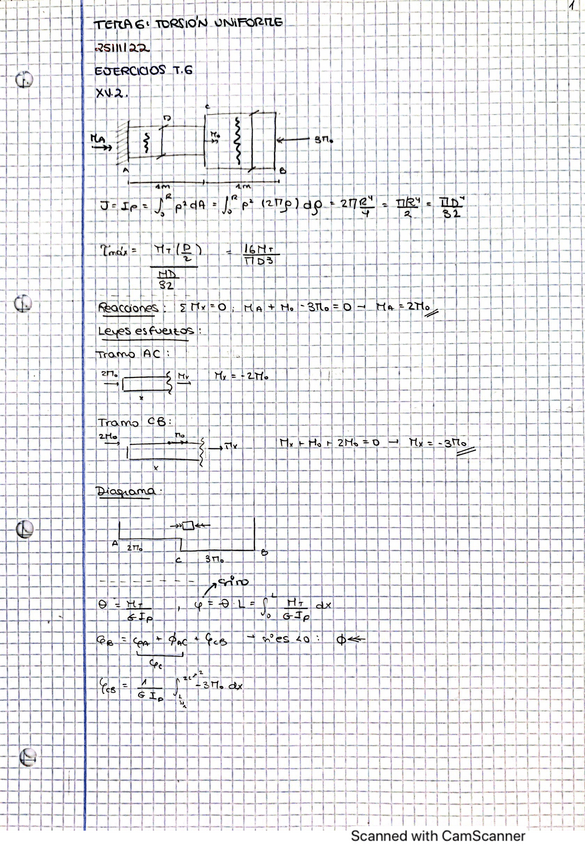 1
TEMA 6: TORSIÓN UNIFORME
25/11/22
EJERCICIOS T.6
XV.2.
C
D
M_A M_0 3M_0
A B
1m 1m
J = I_P = ∫_0^R ρ² dA = ∫_0^R ρ² (2πρ) dρ = 2π R⁴/4 = πR⁴/2 = πD⁴/32
τmáx = M_T (D/2) / (πD/32) = 16M_T / πD3
Reacciones: ΣM_x = 0; M_A + M_0 - 3M_0 = 0 → M_A = 2M_0
Leyes esfuerzos:
Tramo AC:
2M_0 M_x M_x = -2M_0
x
Tramo CB:
2M_0 M_0 M_x M_x + M_0 + 2M_0 = 0 → M_x = -3M_0
x
Diagrama
A 2M_0 C 3M_0 B
Giro
θ = M_T / GI_P , φ = θ · L = ∫_0^L M_T / GI_P dx
φ_B = φ_A + φ_AC + φ_CB → si es <0: φ←
φ_C
φ_CB = 1 / GI_P ∫ -3M_0 dx
Scanned with CamScanner